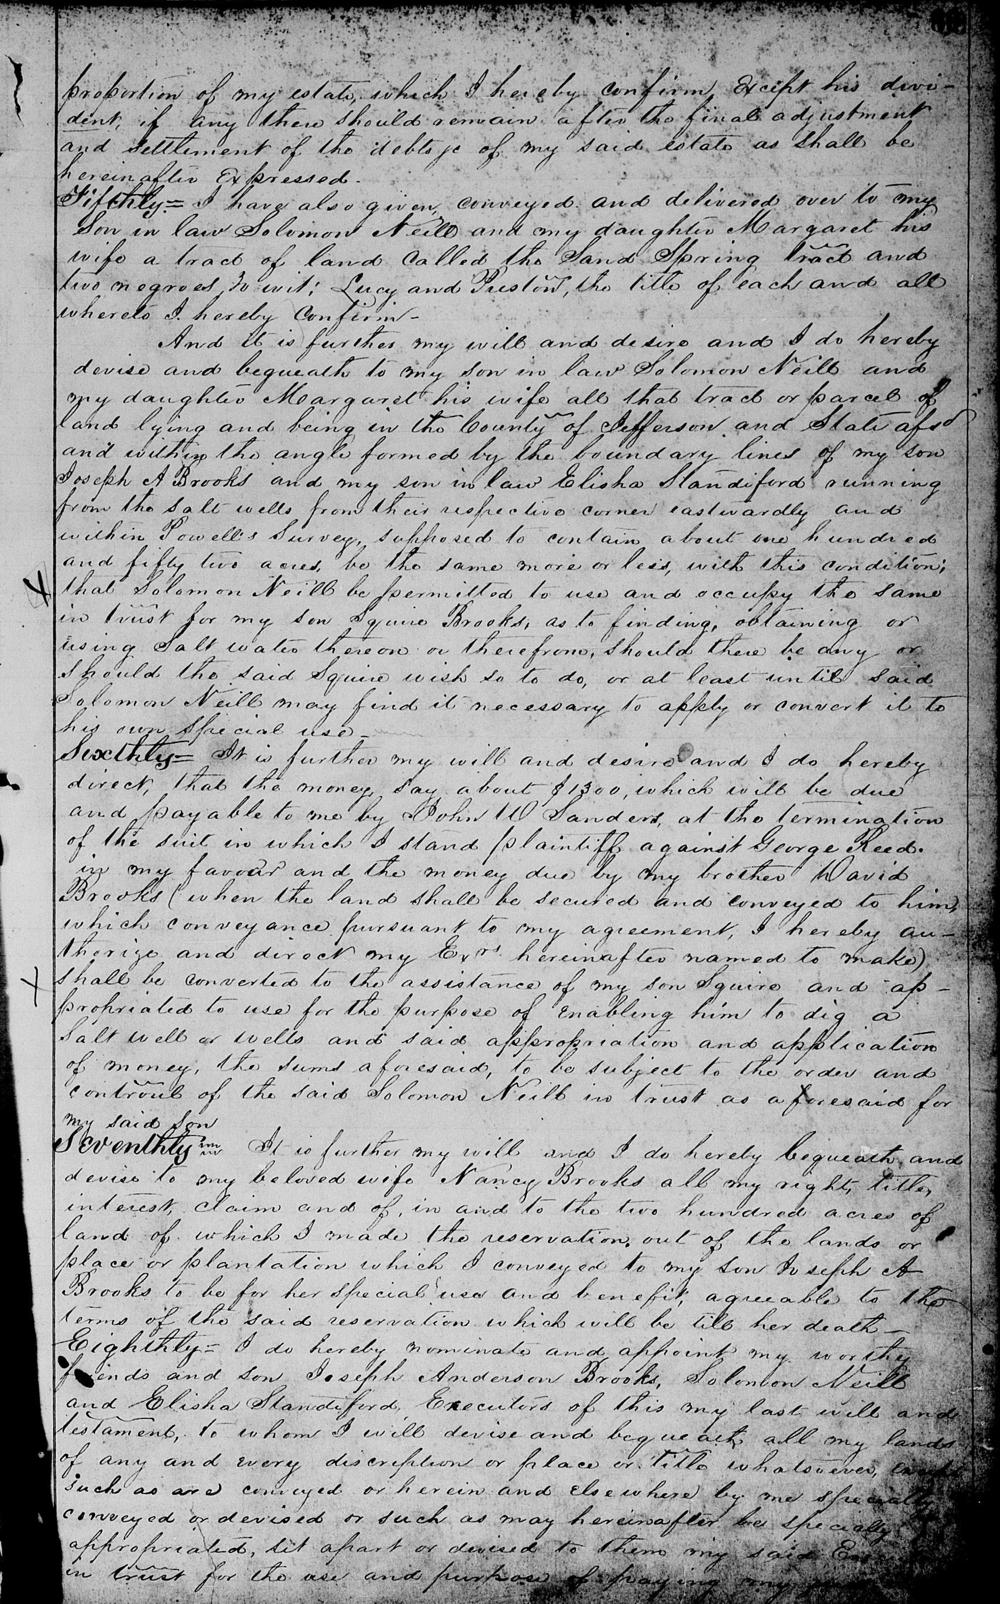 proportion of my estate, which I hereby confirm, Except his divi-
dent, if any there should remain after the final adjustment
and settlement of the debts &c of my said estate as shall be
hereinafter Expressed.
Fifthly= I have also given, conveyed and delivered over to my
Son in law Solomon Neill and my daughter Margaret his
wife a tract of land Called the Sand Spring tract and
two negroes, To wit; Lucy and Preston, the title of each and all
whereto I hereby Confirm-
And it is further my will and desire and I do hereby
devise and bequeath to my son in law Solomon Neill and
my daughter Margaret his wife all that tract or parcel of
land lying and being in the County of Jefferson and State afsd
and within the angle formed by the boundary lines of my son
Joseph A Brooks and my son in law Elisha Standiford running
from the Salt wells from their respective corner eastwardly and
within Powell's Survey, supposed to contain about one hundred
and fifty two acres, be the same more or less, with this condition;
that Solomon Neill be permitted to use and occupy the same
in trust for my son Squire Brooks, as to finding, obtaining or
using Salt water thereon or therefrom, should there be any or
should the said Squire wish so to do, or at least until said
Solomon Neill may find it necessary to apply or convert it to
his own special use-
Sixthly= It is further my will and desire and I do hereby
direct, that the money, say about $1300, which will be due
and payable to me by John W Sanders, at the termination
of the suit in which I stand plaintiff against George Reed.
in my favour and the money due by my brother David
Brooks (when the land shall be secured and conveyed to him,
which conveyance pursuant to my agreement, I hereby au-
thorize and direct my Exrs hereinafter named to make)
shall be converted to the assistance of my son Squire and ap-
propriated to use for the purpose of Enabling him to dig a
Salt well or wells and said appropriation and application
of money, the sums aforesaid, to be subject to the order and
controul of the said Solomon Neill in trust as aforesaid for
my said Son
Seventhly It is further my will and I do hereby bequeath and
devise to my beloved wife Nancy Brooks all my right, title,
interest, claim and of, in and to the two hundred acres of
land of which I made the reservation, out of the lands or
place or plantation which I conveyed to my son Joseph A
Brooks to be for her special use and benefit, agreeable to the
terms of the said reservation which will be till her death-
Eighthly= I do hereby nominate and appoint my worthy
friends and son Joseph Anderson Brooks, Solomon Neill
and Elisha Standiford, Executors of this my last will and
testament, to whom I will devise and bequeath all my lands
of any and every discreption or place or title whatsoever,
such as are conveyed or herein and elsewhere by me specially
conveyed or devised or such as may hereinafter be specially
appropriated, set apart or devised to them my said
in trust for the use and purpose of paying my